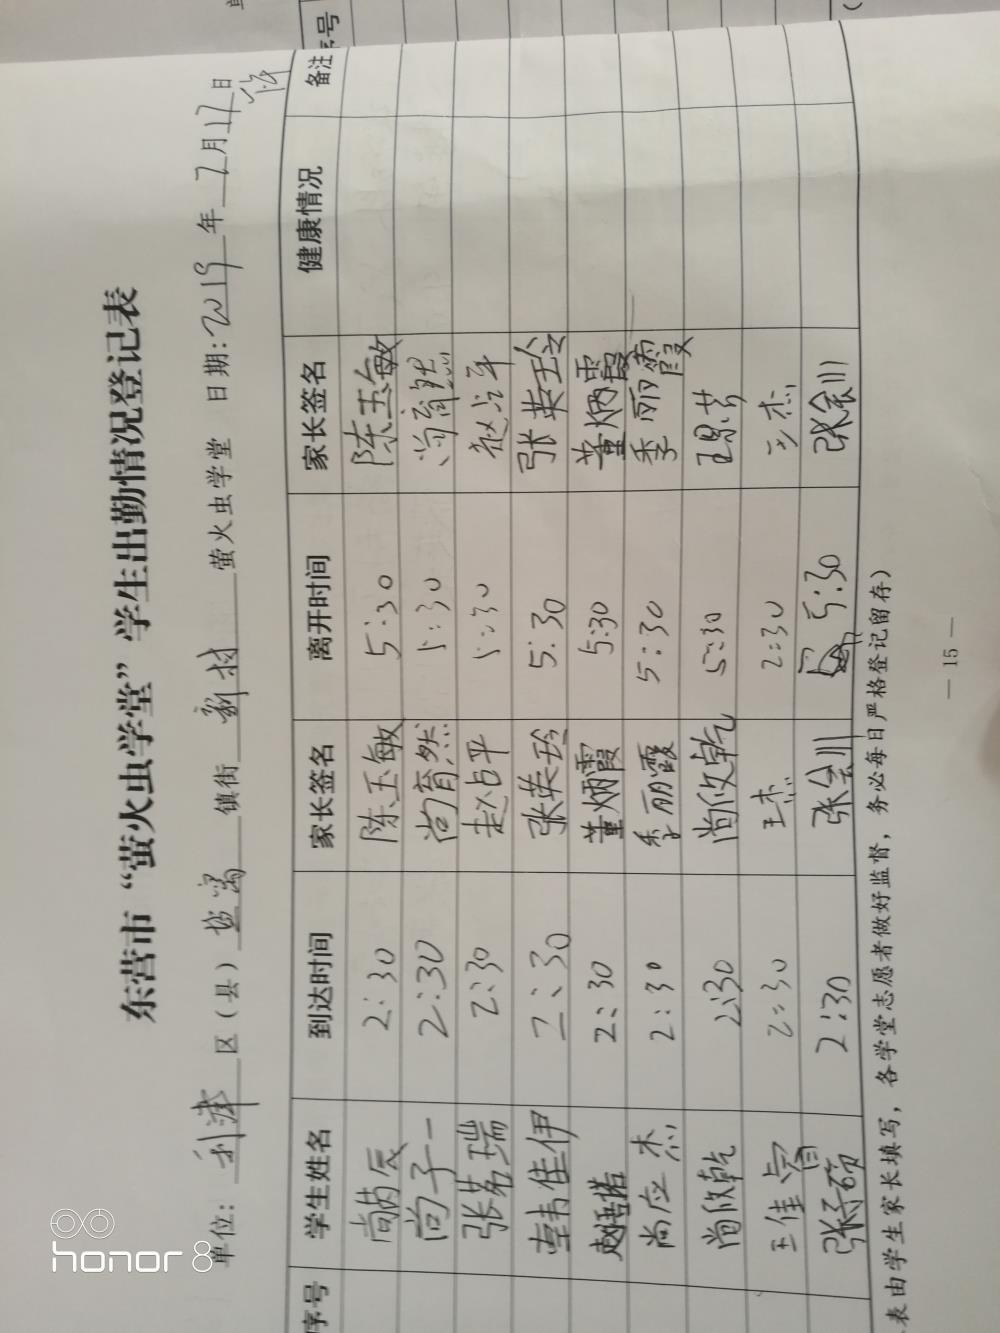 东营市“萤火虫学堂”学生出勤情况登记表
单位: 利津 区（县） 盐窝 镇街 新村 萤火虫学堂 日期: 2019 年 7 月 17 日
序号 学生姓名 到达时间 家长签名 离开时间 家长签名 健康情况 备注
尚芮辰 2:30 陈玉敏 5:30 陈玉敏
尚子一 2:30 尚育然 5:30 尚育然
张茗瑞 2:30 赵占平 5:30 赵占平
佳伊 2:30 张英玲 5:30 张英玲
2:30 董炳霞 5:30 董炳霞
尚应杰 2:30 季丽霞 5:30 季丽霞
尚攸乾 2:30 尚攸乾 5:30
王佳 2:30 王杰 2:30 王杰
张 2:30 张会川 5:30 张会川
表由学生家长填写，各学堂志愿者做好监督，务必每日严格登记留存）
— 15 —
honor 8